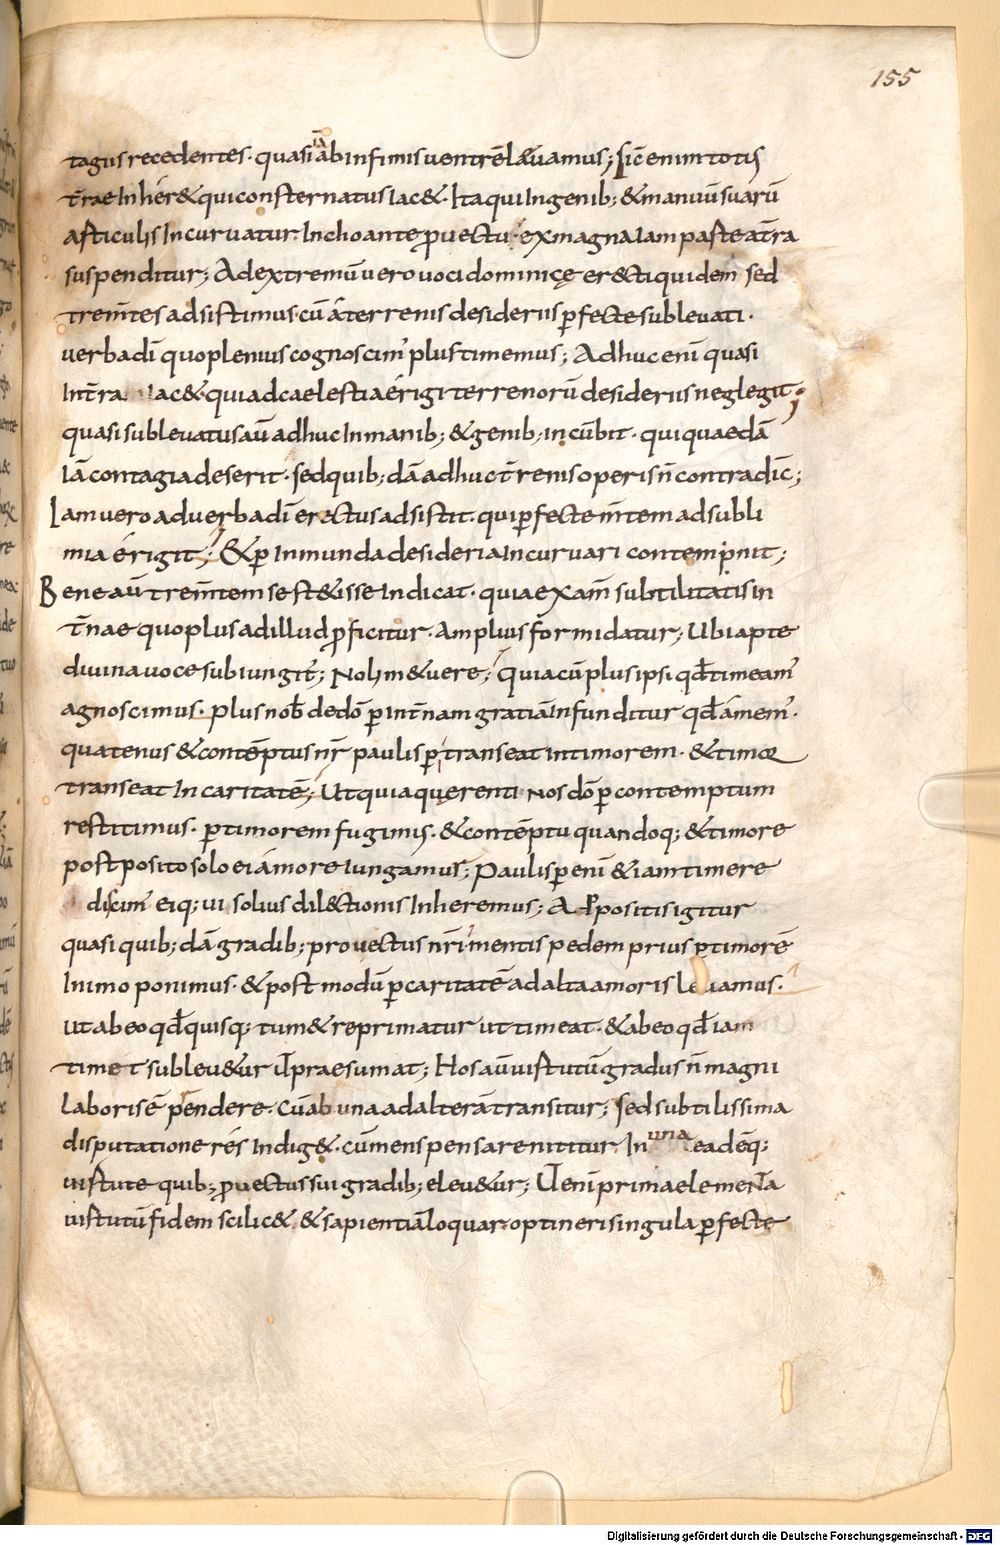 155
tagus recedentes· quasi iā ab infimis uentrē leuamus; sic enim totis
t̄rae inher& qui consternatus iac&· Ita qui in genib; & manuū suarū
articulis incuruatur. Inchoante ꝓuectu· ex magna iam parte a t̄ra
suspenditur; Ad extremū uero uoci dominicę erecti quidem sed
trem̄tes adsistimus· cū a terrenis desideriis ꝑfecte subleuati·
uerba dī quo plenius cognoscim' plus timemus; Adhuc enī quasi
In t̄ra iac&· qui ad caelestia erigi terrenorū desideriis neglegit;
quasi subleuatus aū adhuc in manib; & genib; incūbit· qui quaedā
Iā contagia deserit· sed quib;dā adhuc t̄renis operis n̄ contradic̄;
Iam uero ad uerba dī erectus adsistit· qui ꝑfecte m̄tem ad subli
mia erigit; & ꝑ inmunda desideria incuruari contempnit;
Bene aū trem̄tem se st&isse indicat· quia exam̄ subtilitatis in
t̄nae quo plus ad illud ꝓficitur· amplius formidatur; Ubi apte
diuina uoce subiungit̄; Noli m&uere; Quia cū plus ipsi qđ timeam'
agnoscimus· plus nob̄ de dō ꝑ int̄nam gratiā infunditur qđ amem'·
quatenus & contēptus nr̄ paulisꝑ transeat in timorem· & timor
transeat in caritatē; Ut quia querenti nos dō ꝑ contemptum
restitimus· ꝑ timorem fugimus· & contēptu quandoq; & timore
postposito solo ei amore iungamus; Paulisꝑ enī & iam timere
discim' eiq; ui solius dilectionis inheremus; Appositis igitur
quasi quib;dā gradib; prouectus nr̄i mentis pedem prius ꝑ timorē
In imo ponimus· & postmodū ꝑ caritatē ad alta amoris leuamus·
ut ab eo qđ quisq; tum& reprimatur ut timeat· & ab eo qđ iam
timet subleu&ur ut praesumat; Hos aū uirtutū gradus n̄ magni
laboris ē pendere· cū ab una ad alterā transitur; Sed subtilissima
disputatione res indig&· cū mens pensare nititur. In una eadēq;
uirtute quib; ꝓuectus sui gradib; eleu&ur; Ut enī prima elementa
uirtutū fidem scilic& & sapientiā loquar· optineri singula ꝑfecte
Digitalisierung gefördert durch die Deutsche Forschungsgemeinschaft - DFG